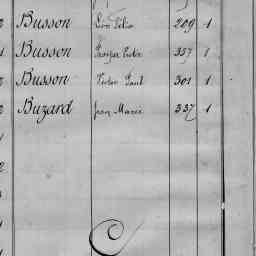 Busson Léon Félix 209 1
Busson 357 1
Busson Victor Paul 301 1
Buzard Jean Marie 337 1
C